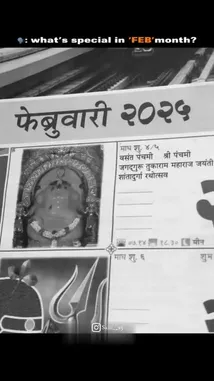 🗣️: what's special in 'FEB'month?
फेब्रुवारी २०२५
माघ शु. ४/५
वसंत पंचमी श्री पंचमी
जगद्गुरू तुकाराम महाराज जयंती
शांतादुर्गा रथोत्सव
मीन
माघ शु. ६